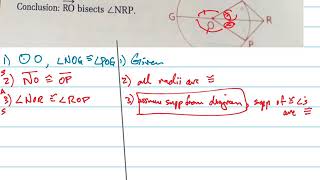 Conclusion: RO bisects ∠NRP.
G O R P
1) ⊙O, ∠NOG ≅ ∠POG 1) Given
S 2) NO ≅ OP 2) all radii are ≅
A 3) ∠NOR ≅ ∠ROP 3) assume supp from diagram, supp of ≅ ∠'s
S are ≅